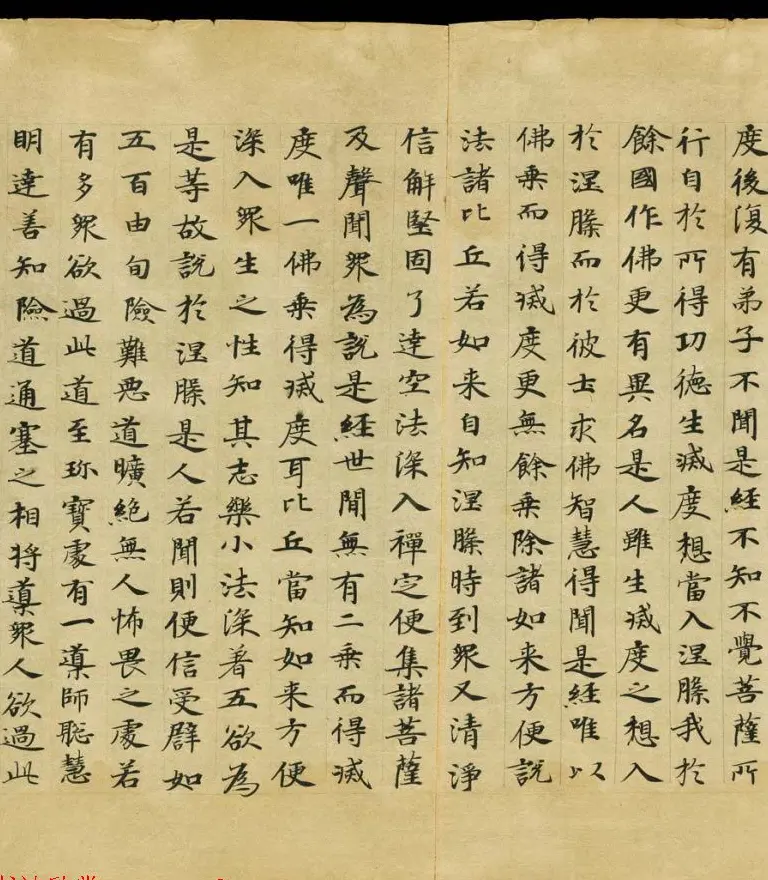 度後復有弟子不聞是經不知不覺菩薩所
行自於所得功德生滅度想當入涅槃我於
餘國作佛更有異名是人雖生滅度之想入
於涅槃而於彼土求佛智慧得聞是經唯以
佛乘而得滅度更無餘乘除諸如来方便說
法諸比丘若如来自知涅槃時到眾又清淨
信解堅固了達空法深入禪定便集諸菩薩
及聲聞眾為說是經世間無有二乘而得滅
度唯一佛乘得滅度耳比丘當知如来方便
深入眾生之性知其志樂小法深著五欲為
是等故說於涅槃是人若聞則便信受譬如
五百由旬險難惡道曠絕無人怖畏之處若
有多眾欲過此道至珎寶處有一導師聡慧
明達善知險道通塞之相将導眾人欲過此